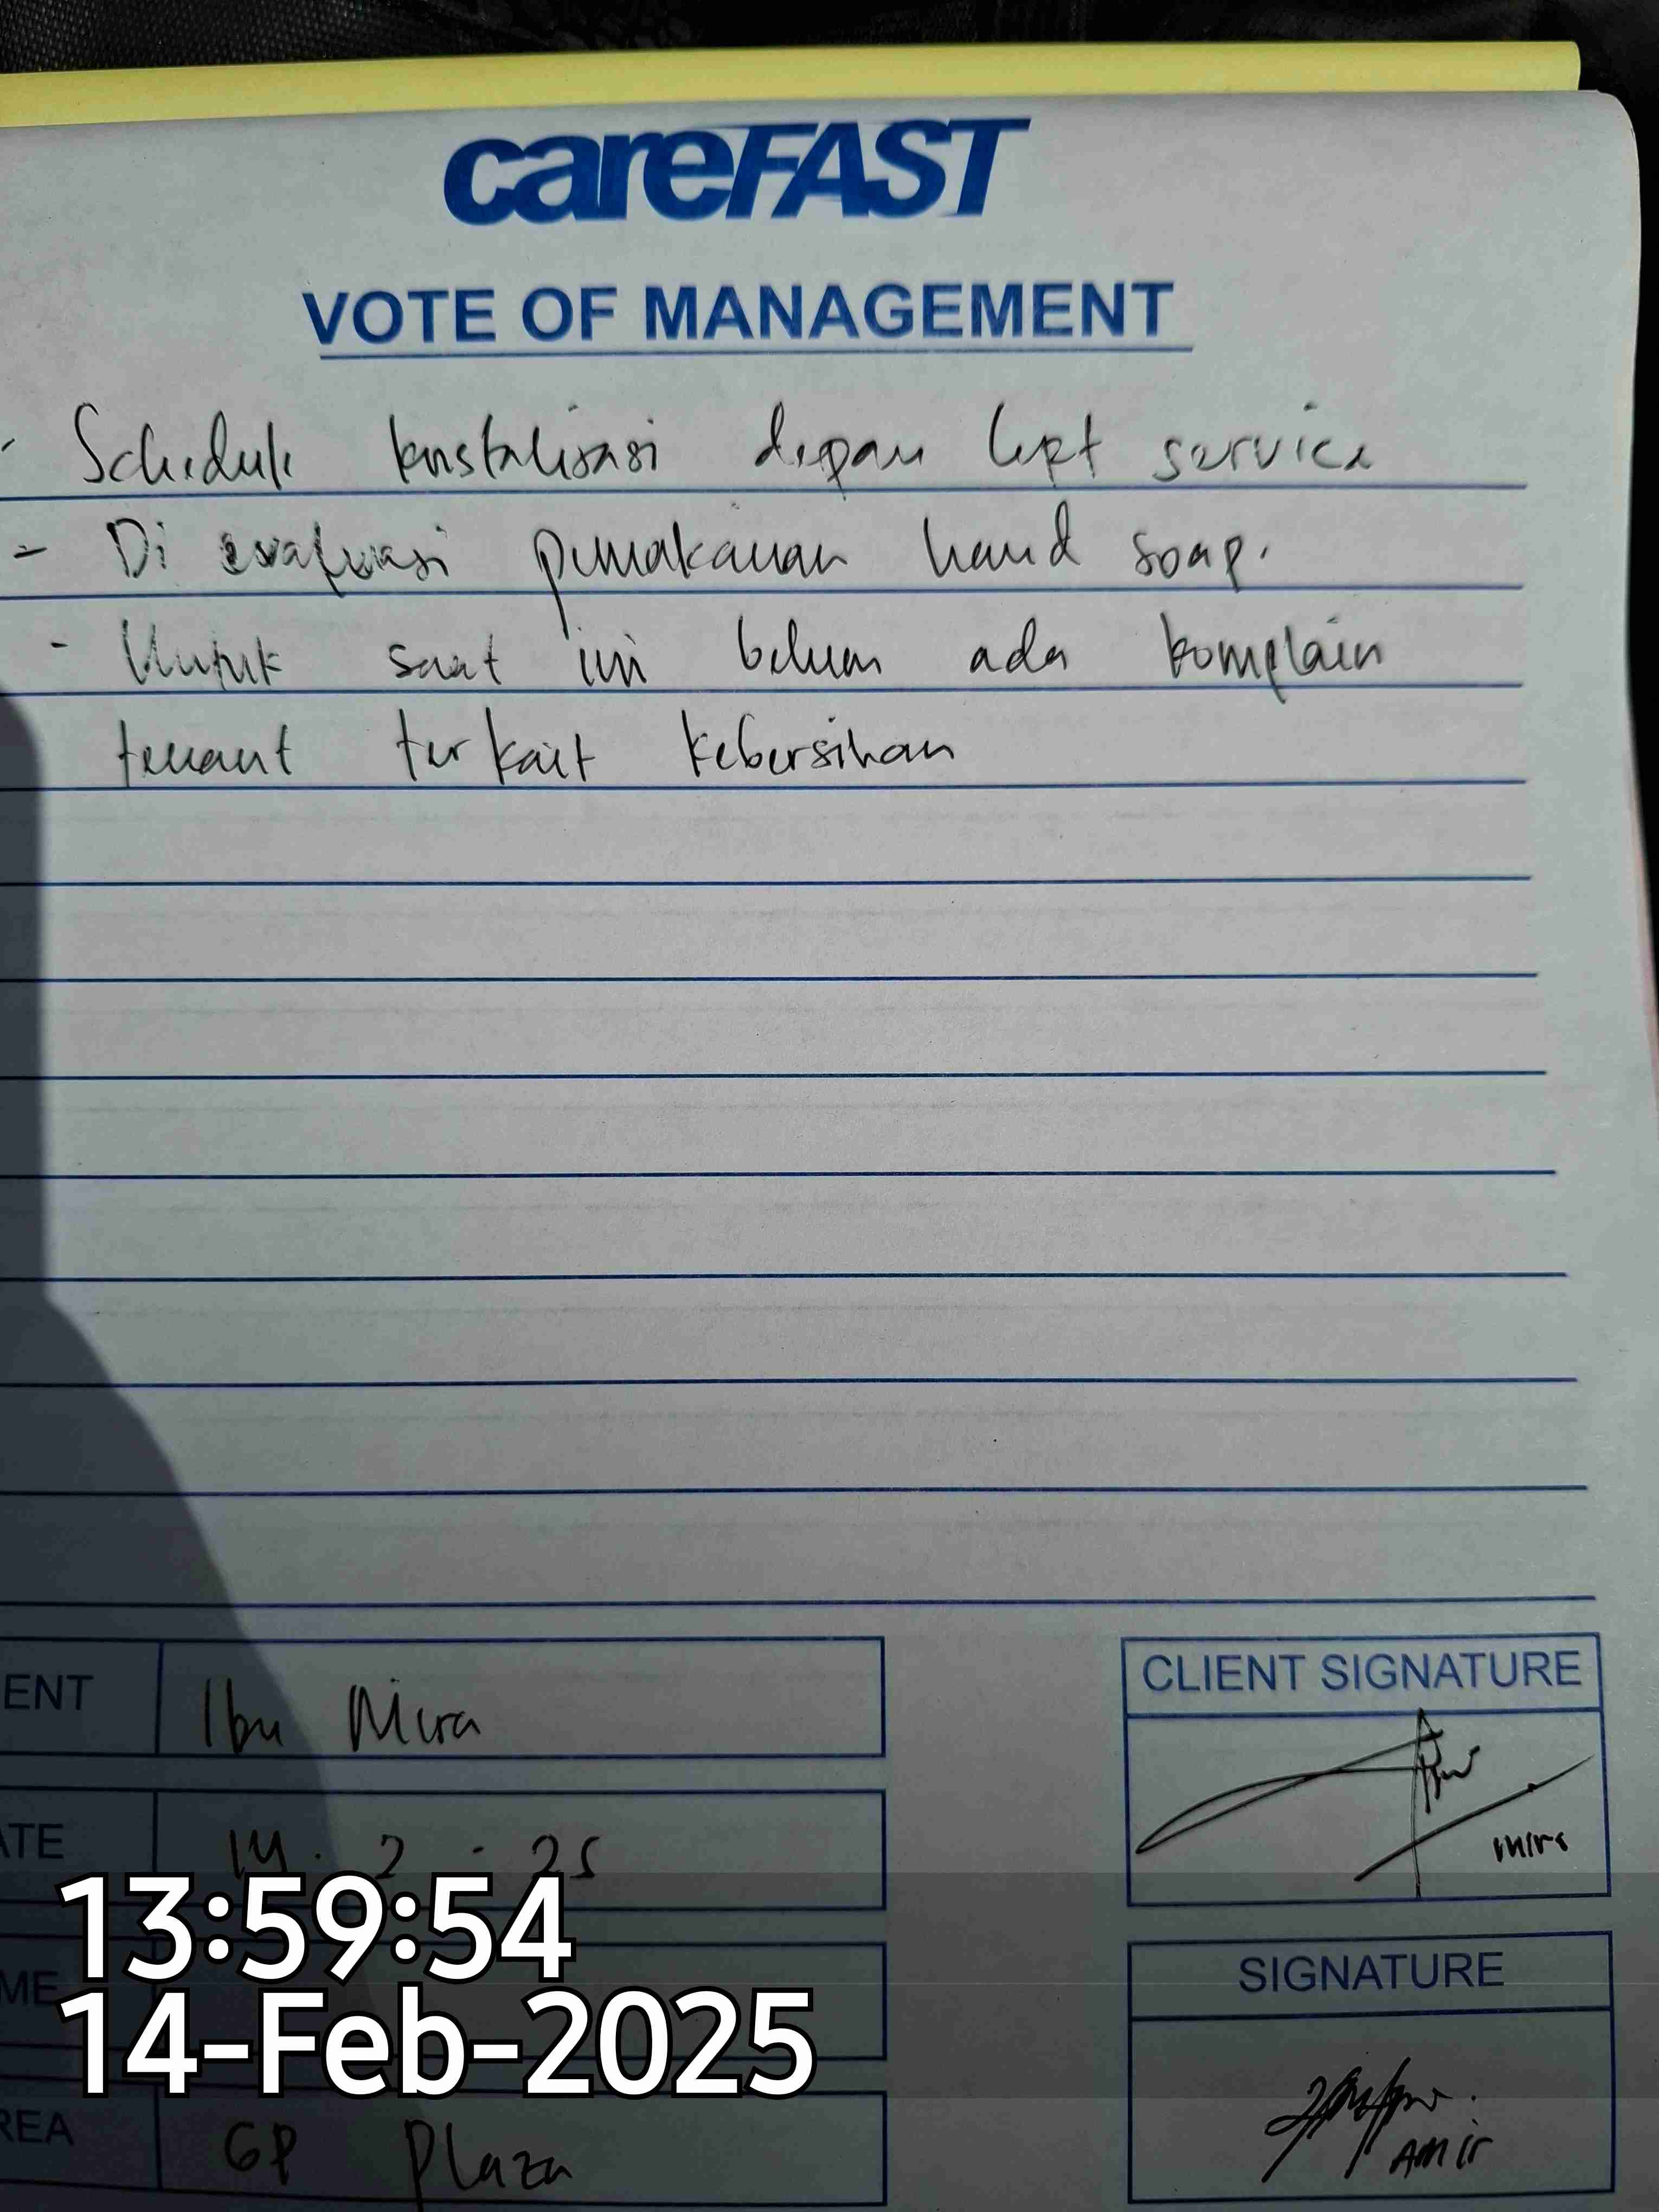 careFAST
VOTE OF MANAGEMENT
- Schedule kristalisasi depan lift service
- Di evaluasi pemakaian hand soap.
- Untuk saat ini belum ada komplain
tenant terkait kebersihan
ENT Ibu Mira
CLIENT SIGNATURE
mira
ATE 14 . 2 - 25
13:59:54
ME
SIGNATURE
14-Feb-2025
REA GP Plaza
Amir